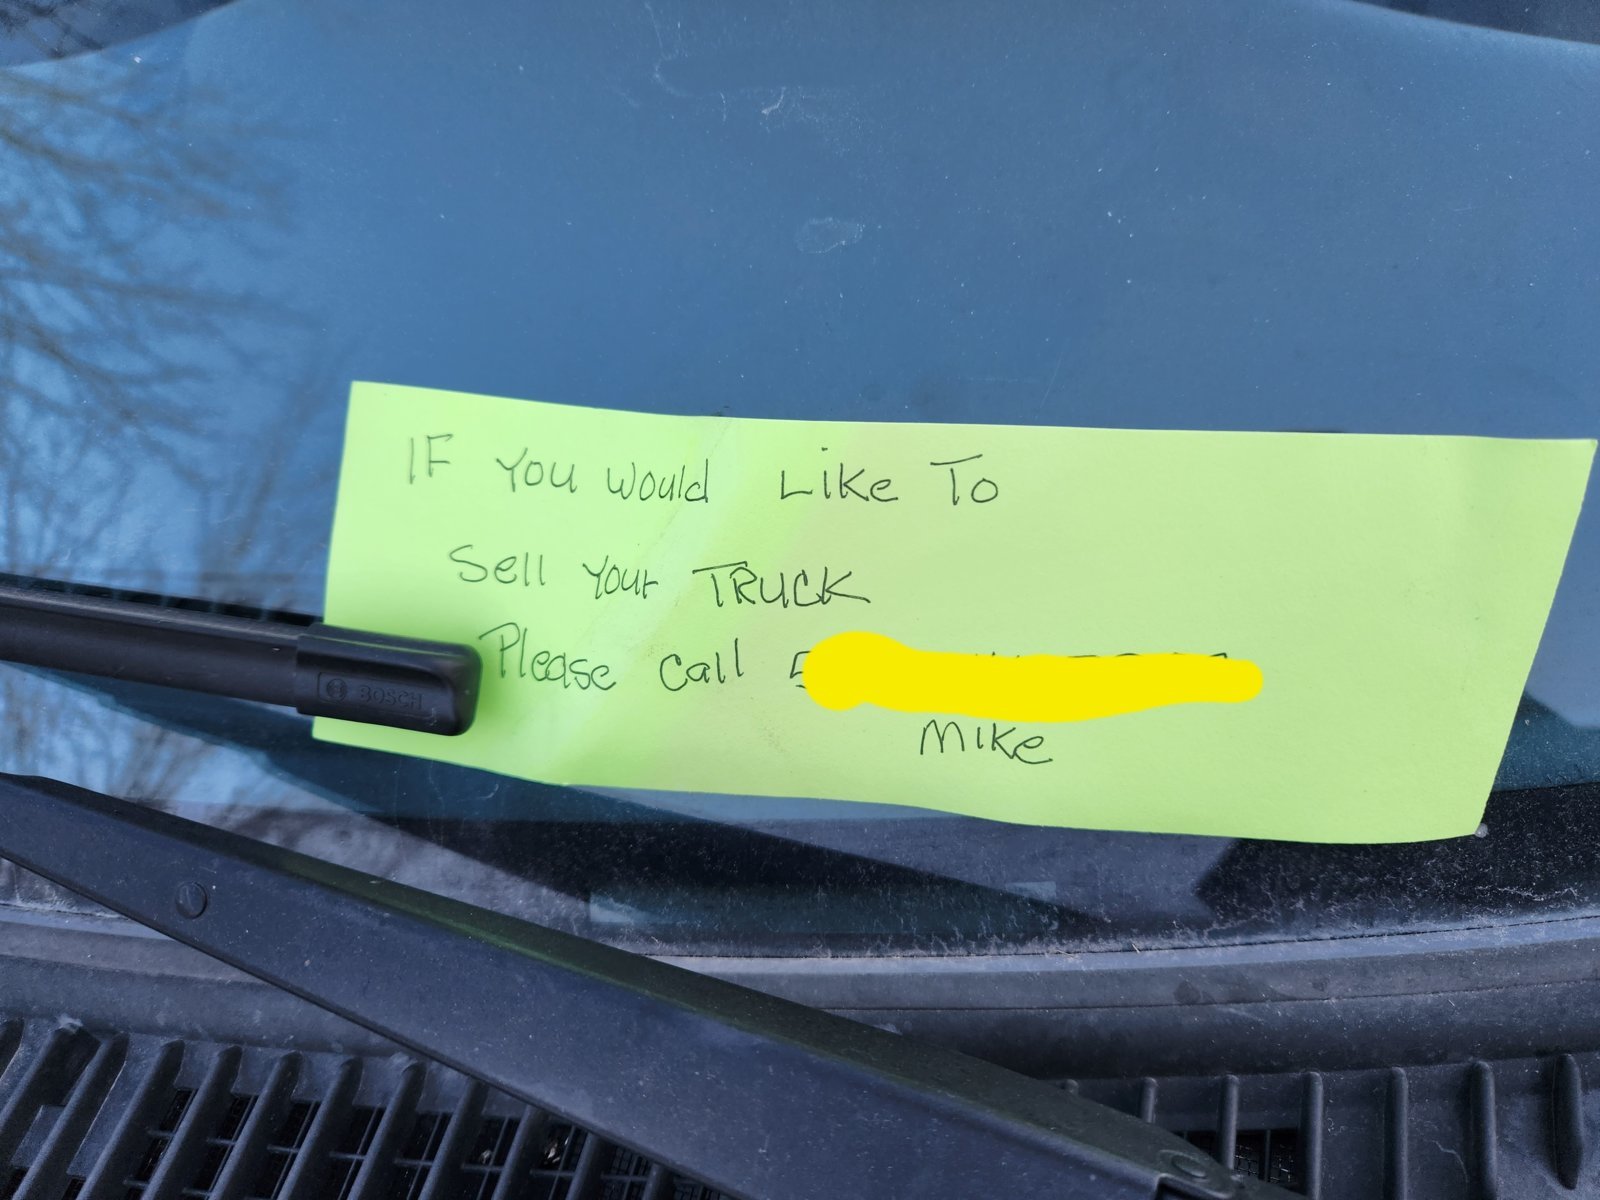 IF You would Like To
Sell Your TRUCK
Please call 5
Mike
BOSCH